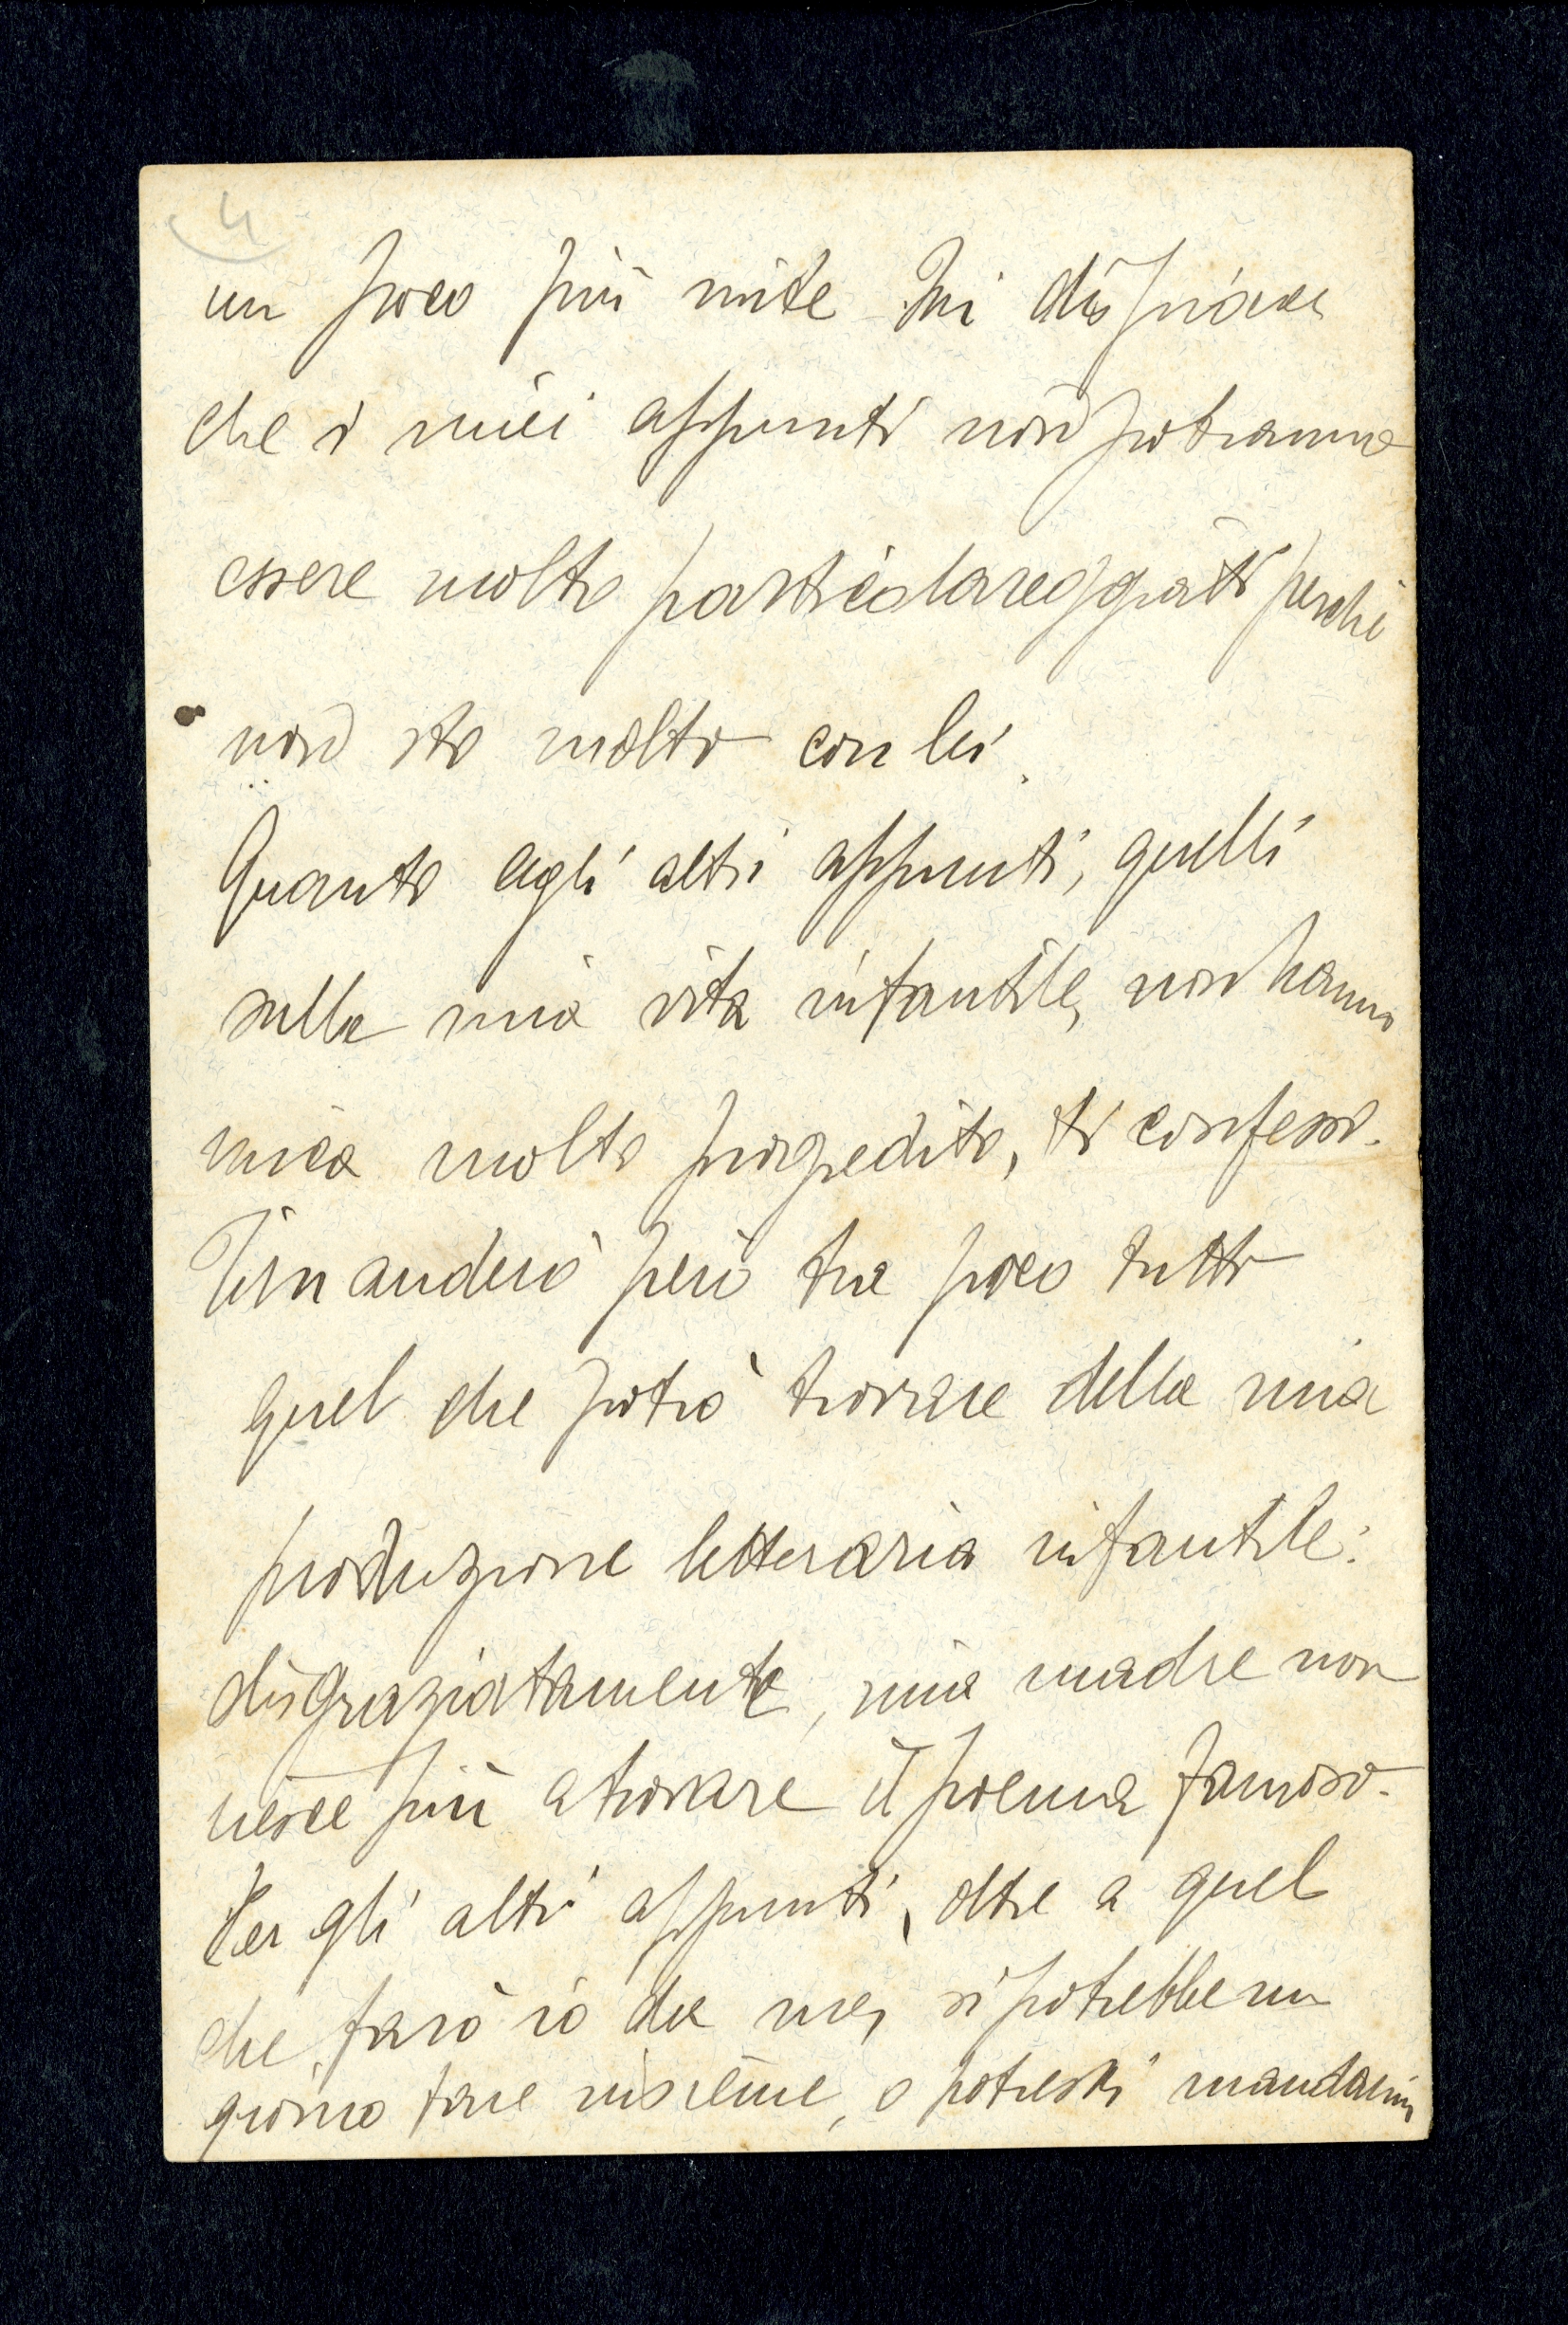 4
un poco più mite. Mi dispiace
che i miei appunti non potranno
essere molto particolareggiati perchè
non sto molto con lei.
Quanto agli altri appunti, quelli
sulla mia vita infantile, non hanno
mica molto progredito, ti confesso.
Ti manderò però tra poco tutto
quel che potrò trovare della mia
produzione letteraria infantile:
disgraziatamente, mia madre non
riesce più a trovare il poema famoso.
Per gli altri appunti, oltre a quel
che farò io da me, si potrebbe un
giorno fare insieme, o potresti mandarmi